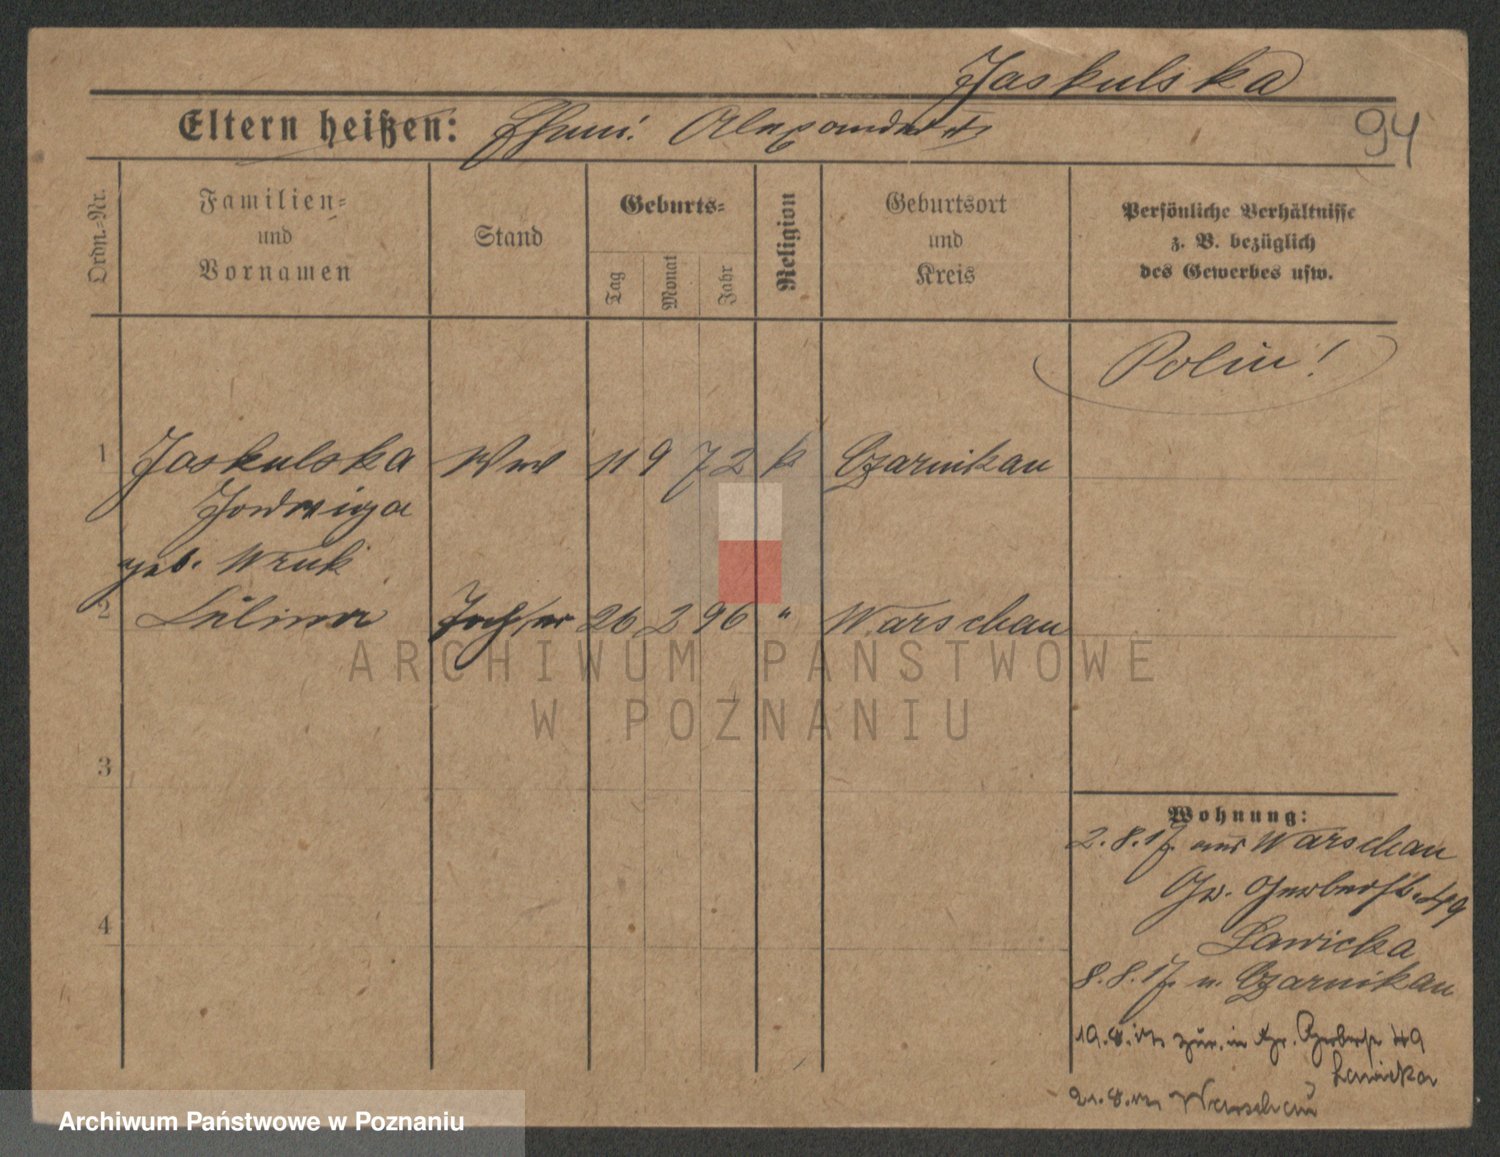 Jaskulska
Eltern heißen: Alexander
94
Ordn.-Nr.
Familien-
und
Vornamen
Stand
Geburts-
Tag
Monat
Jahr
Religion
Geburtsort
und
Kreis
Persönliche Verhältnisse
z. B. bezüglich
des Gewerbes usw.
Polin!
1 Jaskulska Ww 11 9 72 k Czarnikau
Hedwiga
geb. Wruk
2 26 2 96 " Warschau
ARCHIWUM PAŃSTWOWE
W POZNANIU
3
Wohnung:
2.8.17. aus Warschau
Gr. Gerberstr. 49
4
Lawicka
8.8.17. n. Czarnikau
19.8.17 zur. in Gr. Gerberstr 49
Lawicka
21.8.17 Warschau
Archiwum Państwowe w Poznaniu